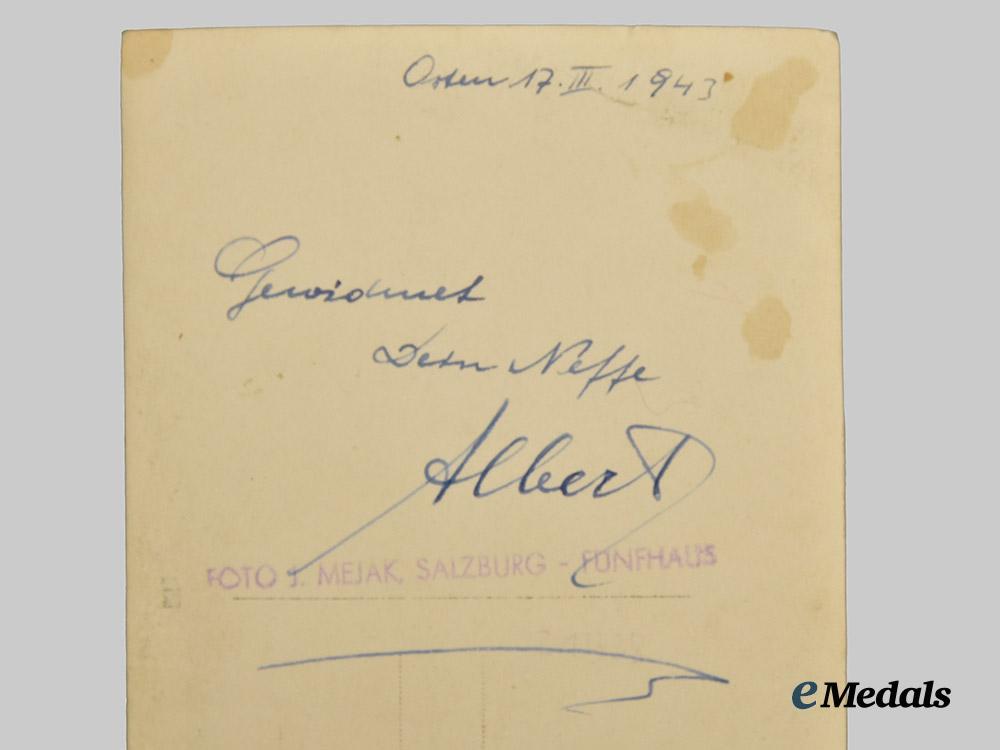 Osten 17. III. 1943
Gewidmet
Dein Neffe
Albert
FOTO J. MEJAK, SALZBURG - FÜNFHAUS
eMedals